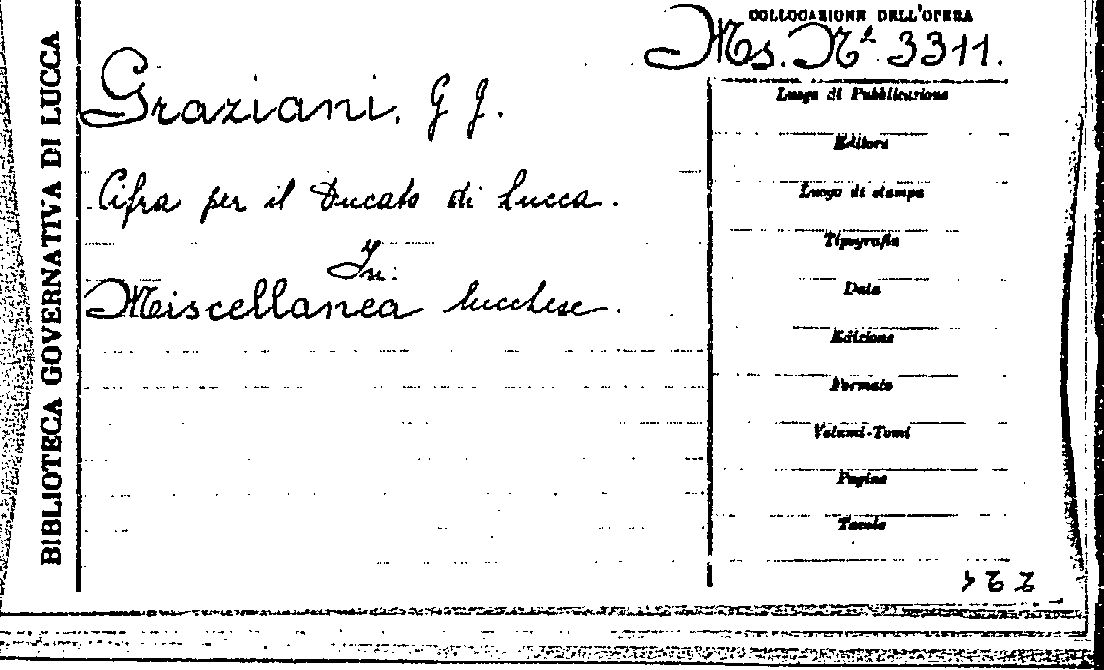 BIBLIOTECA GOVERNATIVA DI LUCCA
COLLOCAZIONE DELL'OPERA
Ms. Nº 3311.
Graziani, G G.
Cifra per il Ducato di Lucca.
In:
Miscellanea lucchese.
Luogo di Pubblicazione
Editore
Luogo di stampa
Tipografia
Data
Edizione
Formato
Volumi-Tomi
Pagine
Tavole